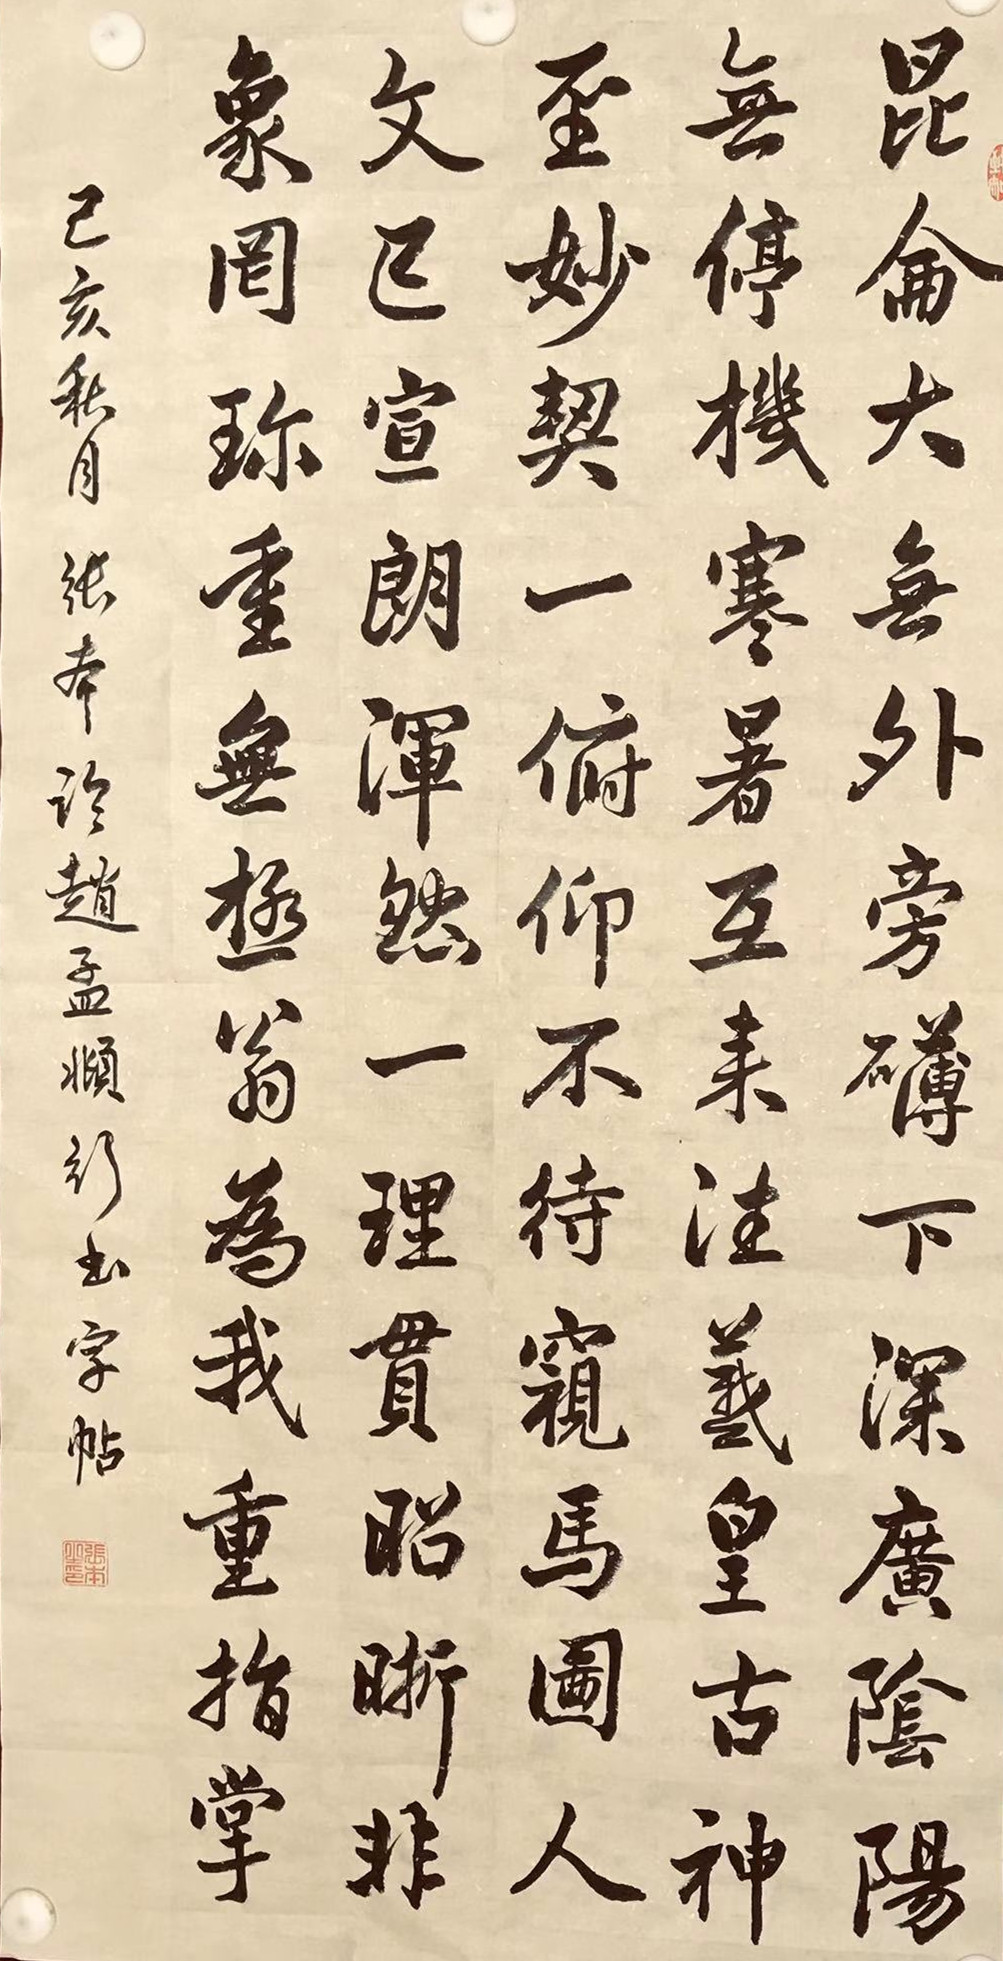 昆侖大無外旁礴下深廣陰陽
無停機寒暑互来洼羲皇古神
至妙契一俯仰不待窺馬圖人
文已宣朗渾然一理貫昭晣非
象罔珎重無極翁為我重指掌
己亥秋月張本臨趙孟頫行书字帖
張本